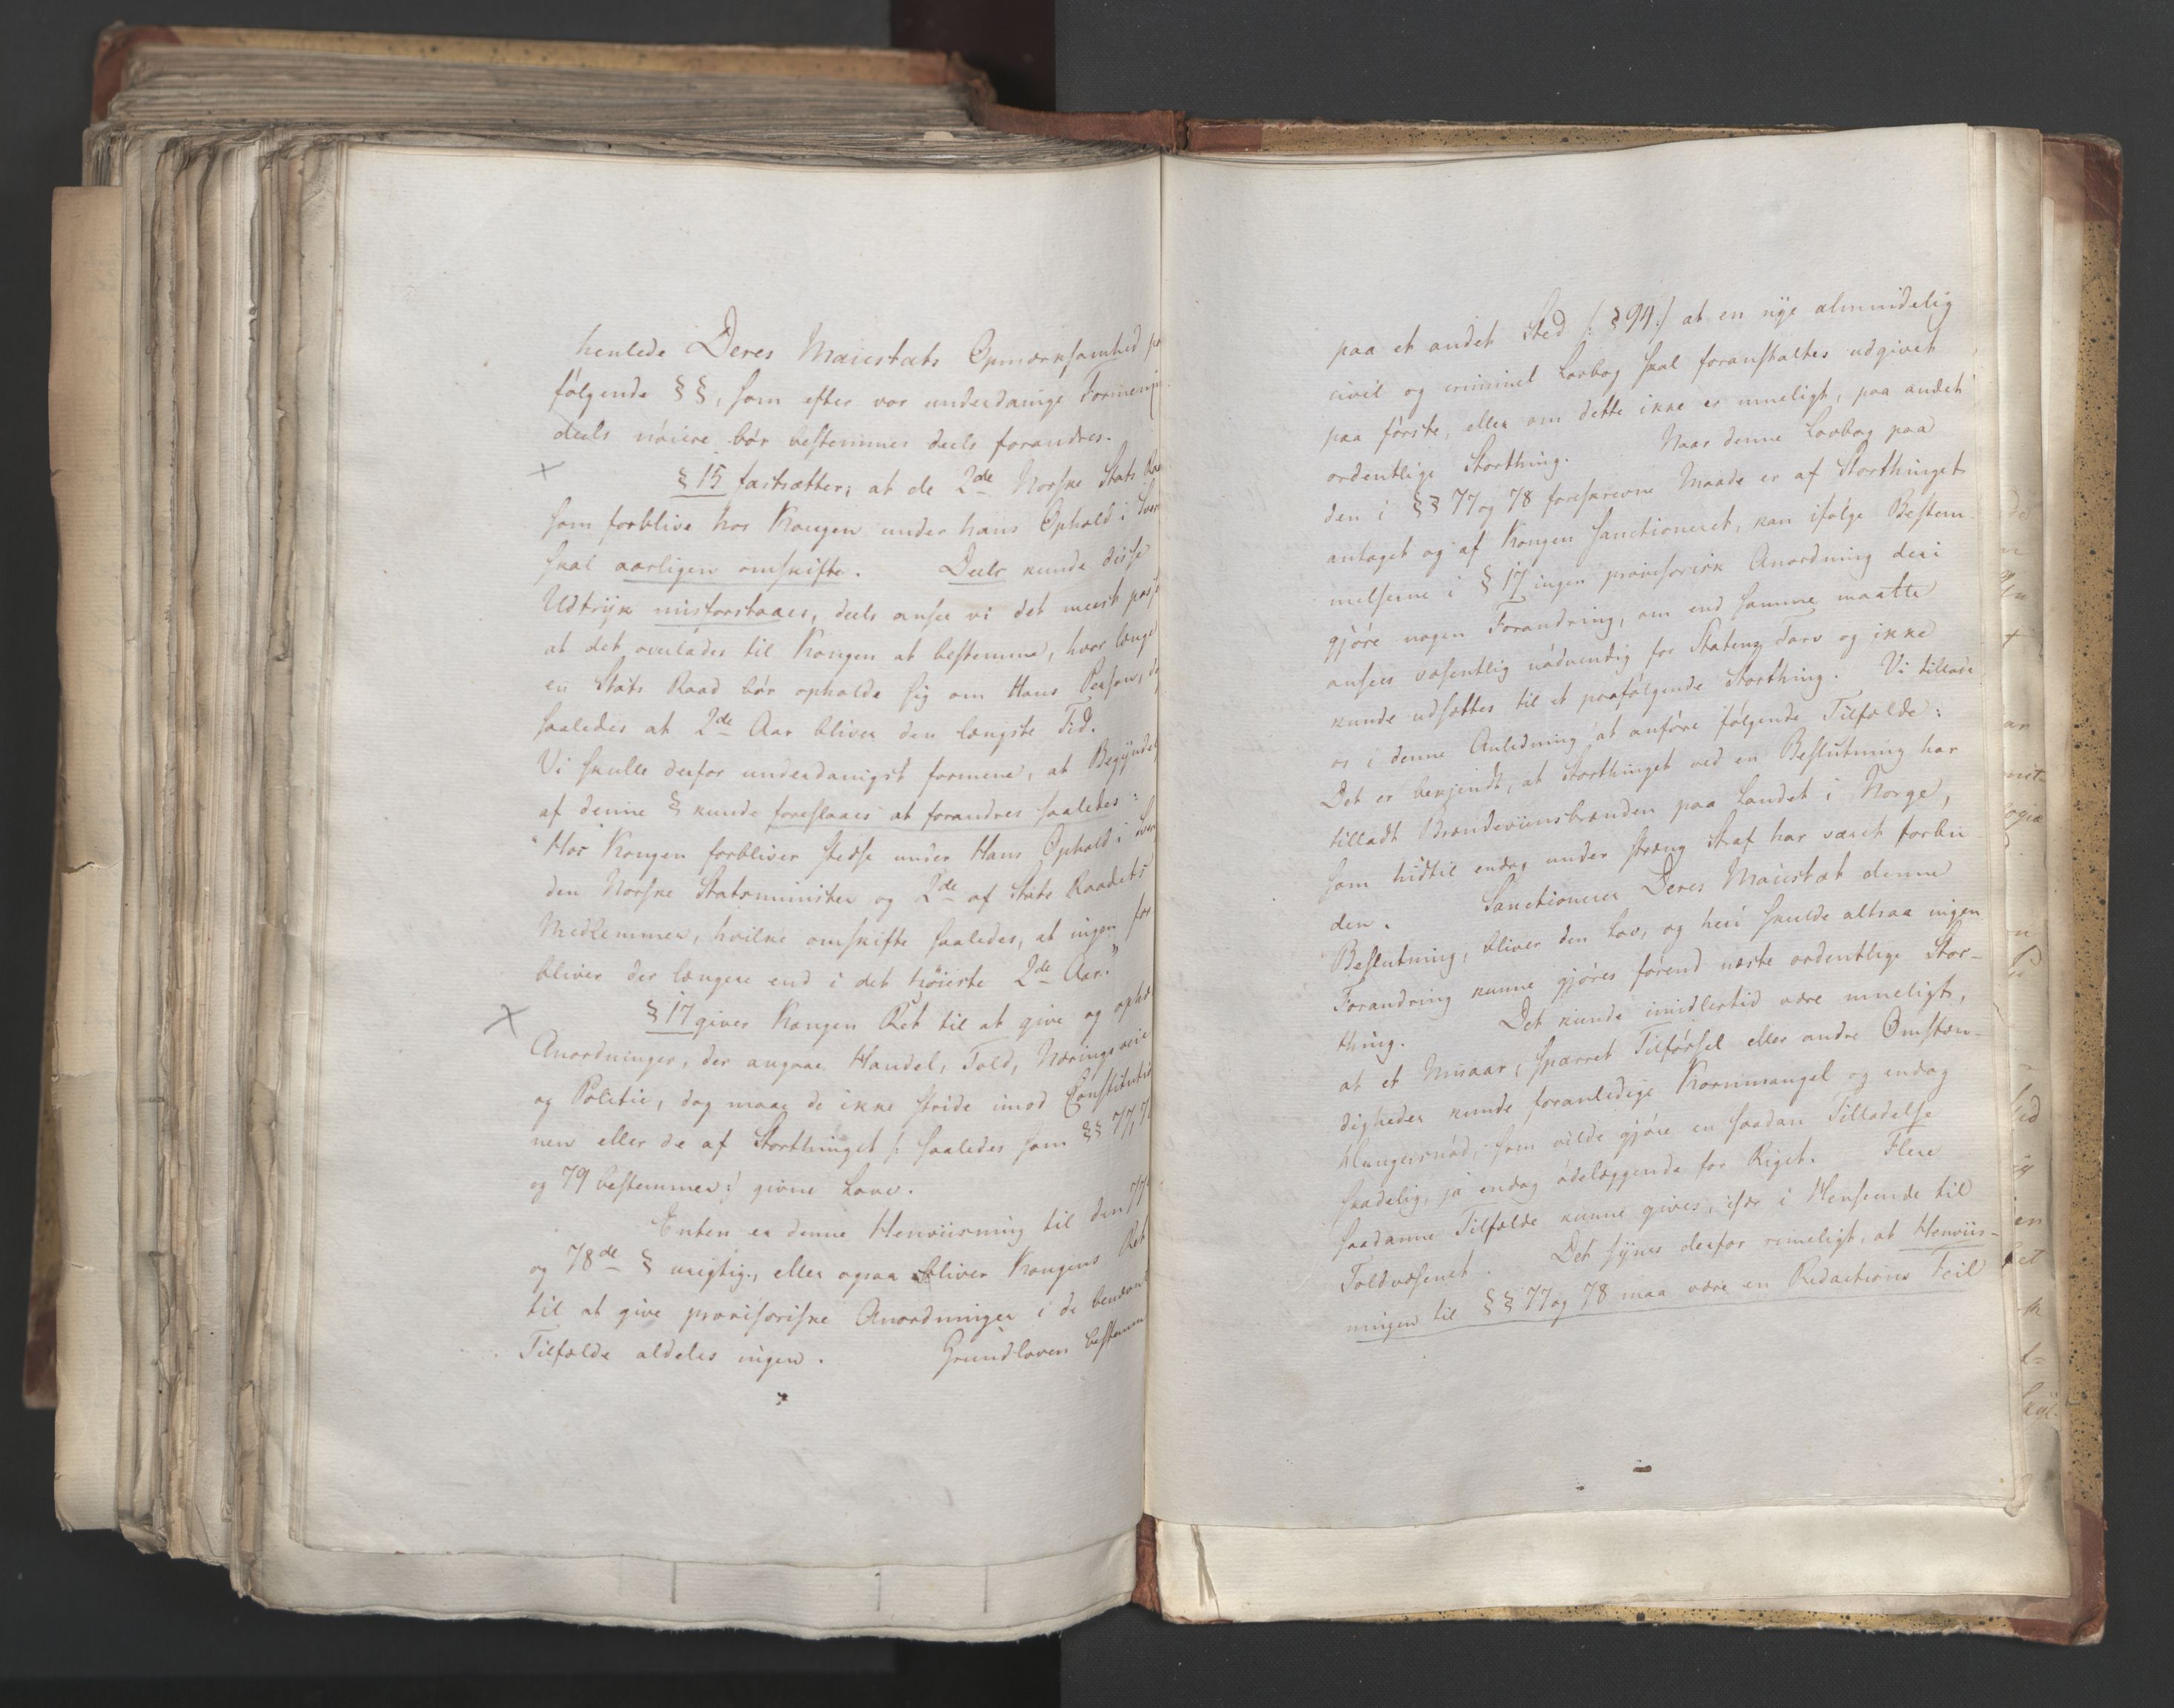 henlede Deres Maiestæts Opmærksomhed
følgende §§, som efter vor underdanige
deels nøiere bør bestemmes deels forandres.
§ 15 fastsætter, at de 2de Norske Stats
som forblive hos Kongen under hans Ophold i
skal aarligen omskifte. Deels kunde disse
Udtryk misforstaaes, deels ansee vi det meest
at det overlades til Kongen at bestemme, hvor længe
en Stats Raad bør opholde sig om Hans Person,
saaledes at 2de Aar bliver den længste Tid.
Vi skulle derfor underdanigst formene, at
af denne § kunde foreslaaes at forandres saaledes:
"Hos Kongen forbliver stedse under Hans Ophold i
den Norske Statsminister og 2de af Stats Raadets
Medlemmer, hvilke omskifte saaledes, at ingen
bliver der længere end i det høieste 2de Aar."
§ 17 giver Kongen Ret til at give og
Anordninger, der angaae Handel, Told, Næringsveie
og Politie, dog maae de ikke stride imod
nen eller de af Storthinget /: saaledes som §§ 77,
og 79 bestemmer :/ givne Love.
Enten er denne Henviisning til den 77
og 78de § urigtig, eller ogsaa bliver Kongens Ret
til at give provisoriske Anordninger i de
Tilfælde aldeles ingen. Grundloven
paa et andet Sted /: § 94 :/ at en nye almindelig
civil og criminel Lovbog skal foranstaltes udgivet
paa første, eller om dette ikke er mueligt, paa andet
ordentlige Storthing. Naar denne Lovbog paa
den i §§ 77 og 78 foreskrevne Maade er af Storthinget
antaget og af Kongen sanctioneret, kan ifølge Bestem-
melserne i § 17 ingen provisorisk Anordning deri
gjøre nogen Forandring, om end samme maatte
ansees væsentlig nødvendig for Statens Tarv og ikke
kunde udsættes til et paafølgende Storthing. Vi tillade
os i denne Anledning at anføre følgende Tilfælde:
Det er bekjendt, at Storthinget ved en Beslutning har
tilladt Brændeviinsbrænden paa Landet i Norge,
som hidtil endog under stræng Straf har været forbu-
den. Sanctionerer Deres Maiestæt denne
Beslutning, bliver den Lov, og heri skulde altsaa ingen
Forandring kunne gjøres førend næste ordentlige Stor-
thing. Det kunde imidlertid være mueligt,
at et Misaar, spærret Tilførsel eller andre Omstæn-
digheder kunde foranledige Kornmangel og endog
Hungersnød, som vilde gjøre en saadan Tilladelse
skadelig, ja endog ødelæggende for Riget. Flere
saadanne Tilfælde kunne gives, især i Henseende til
Toldvæsenet. Det synes derfor rimeligt, at Henviis-
ningen til §§ 77 og 78 maa være en Redactions Feil